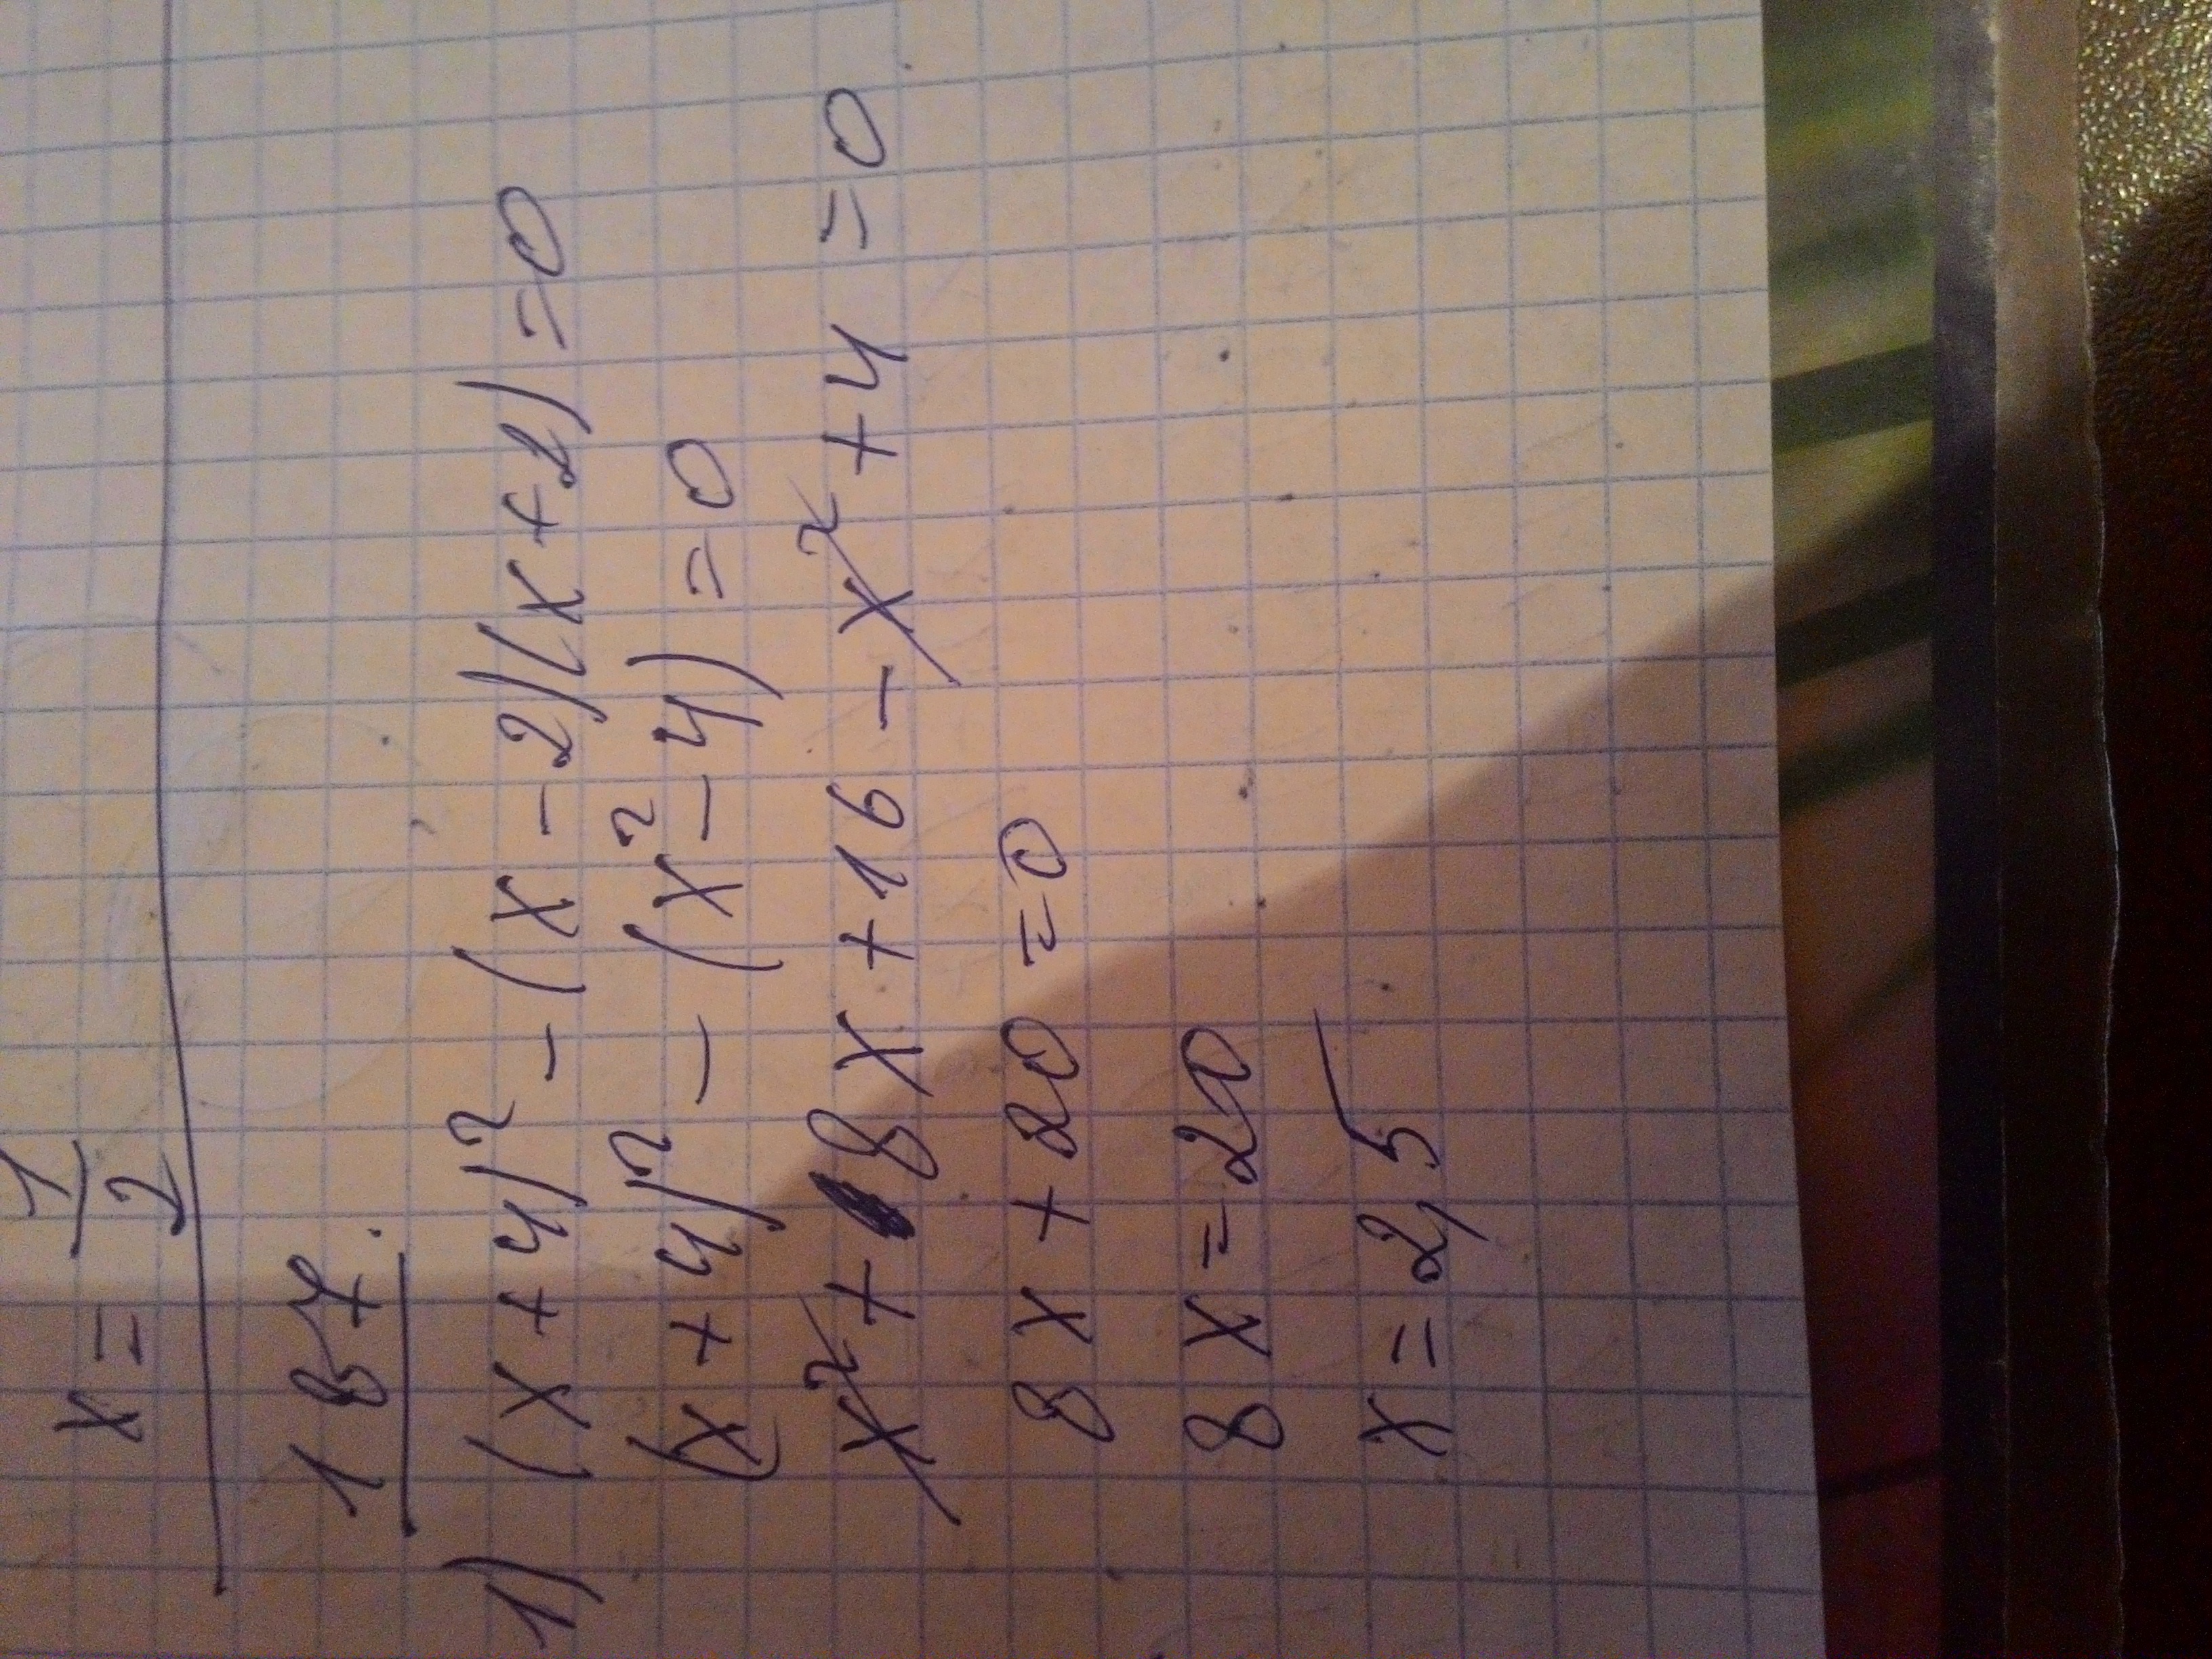 x = 1/2
187.
1) (x+4)² - (x-2)(x+2) = 0
(x+4)² - (x²-4) = 0
x² + 8x + 16 - x² + 4 = 0
8x + 20 = 0
8x = 20
x = 2,5